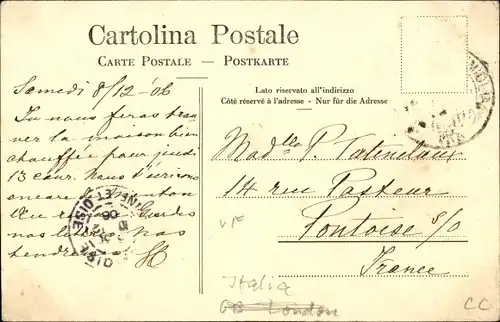 Cartolina Postale
CARTE POSTALE — POSTKARTE
Lato riservato all'indirizzo
Côté réservé à l'adresse - Nur für die Adresse
Samedi 8/12 '06
Tu nous feras trou
ver la maison bien
chauffée pour jeudi
13 cour. Nous t'écrirons
encore
Au
nos
tendresses H
P.
14 rue Pasteur
Pontoise S/O
France
SEINE ET OISE
VF
Italia
GB London
CC